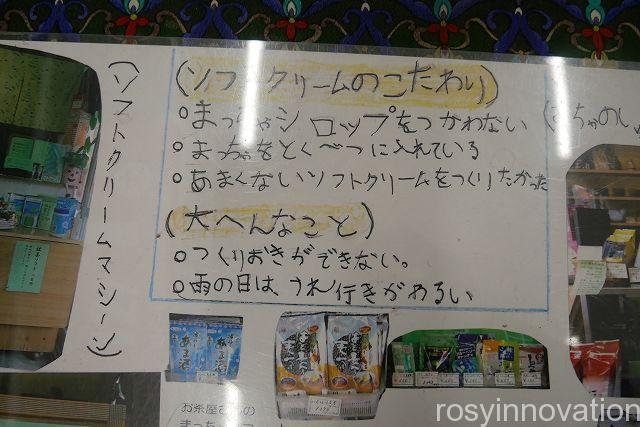 (ソフトクリームマシーン)
(ソフトクリームのこだわり)
○まっちゃシロップをつかわない
○まっちゃをとくべつに入れている
○あまくないソフトクリームをつくりたかった
(大へんなこと)
○つくりおきができない。
○雨の日はうれ行きがわるい
お茶屋さんの
rosyinnovation